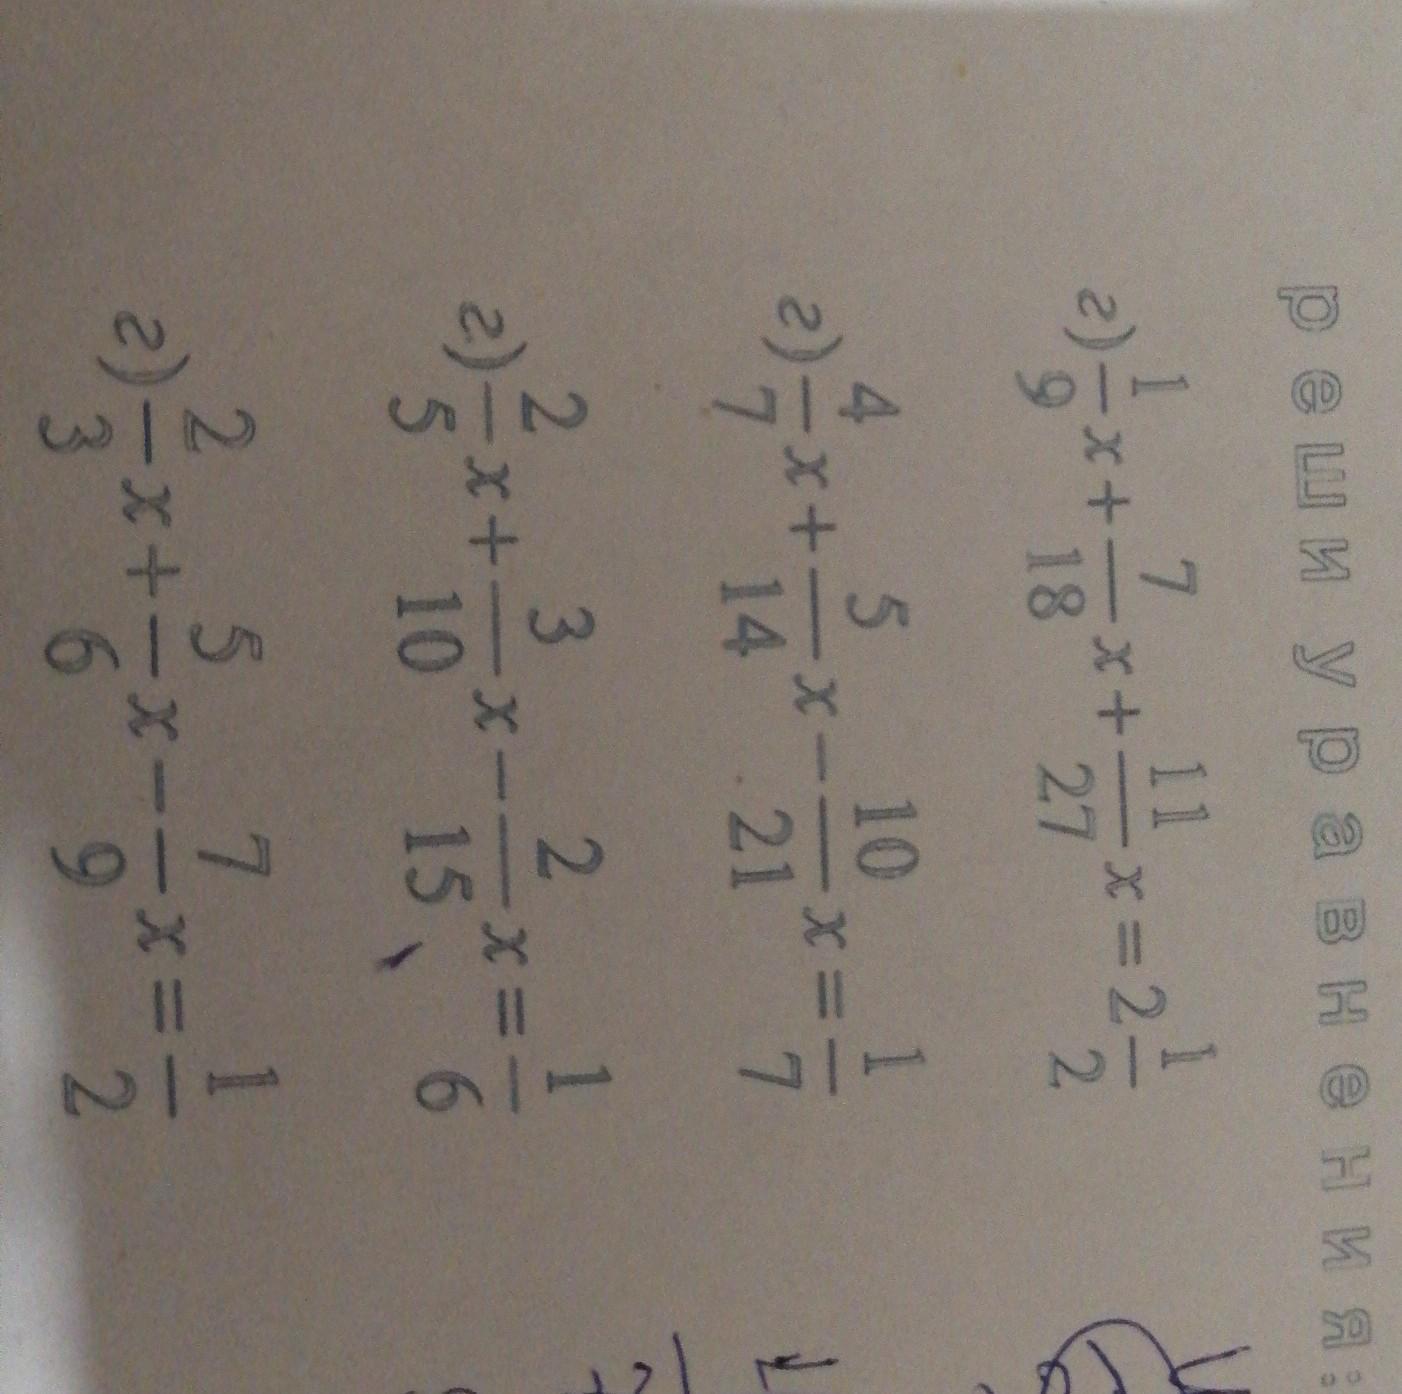 реши уравнения:
г) 1/9 x + 7/18 x + 11/27 x = 2 1/2
г) 4/7 x + 5/14 x − 10/21 x = 1/7
г) 2/5 x + 3/10 x − 2/15 x = 1/6
г) 2/3 x + 5/6 x − 7/9 x = 1/2